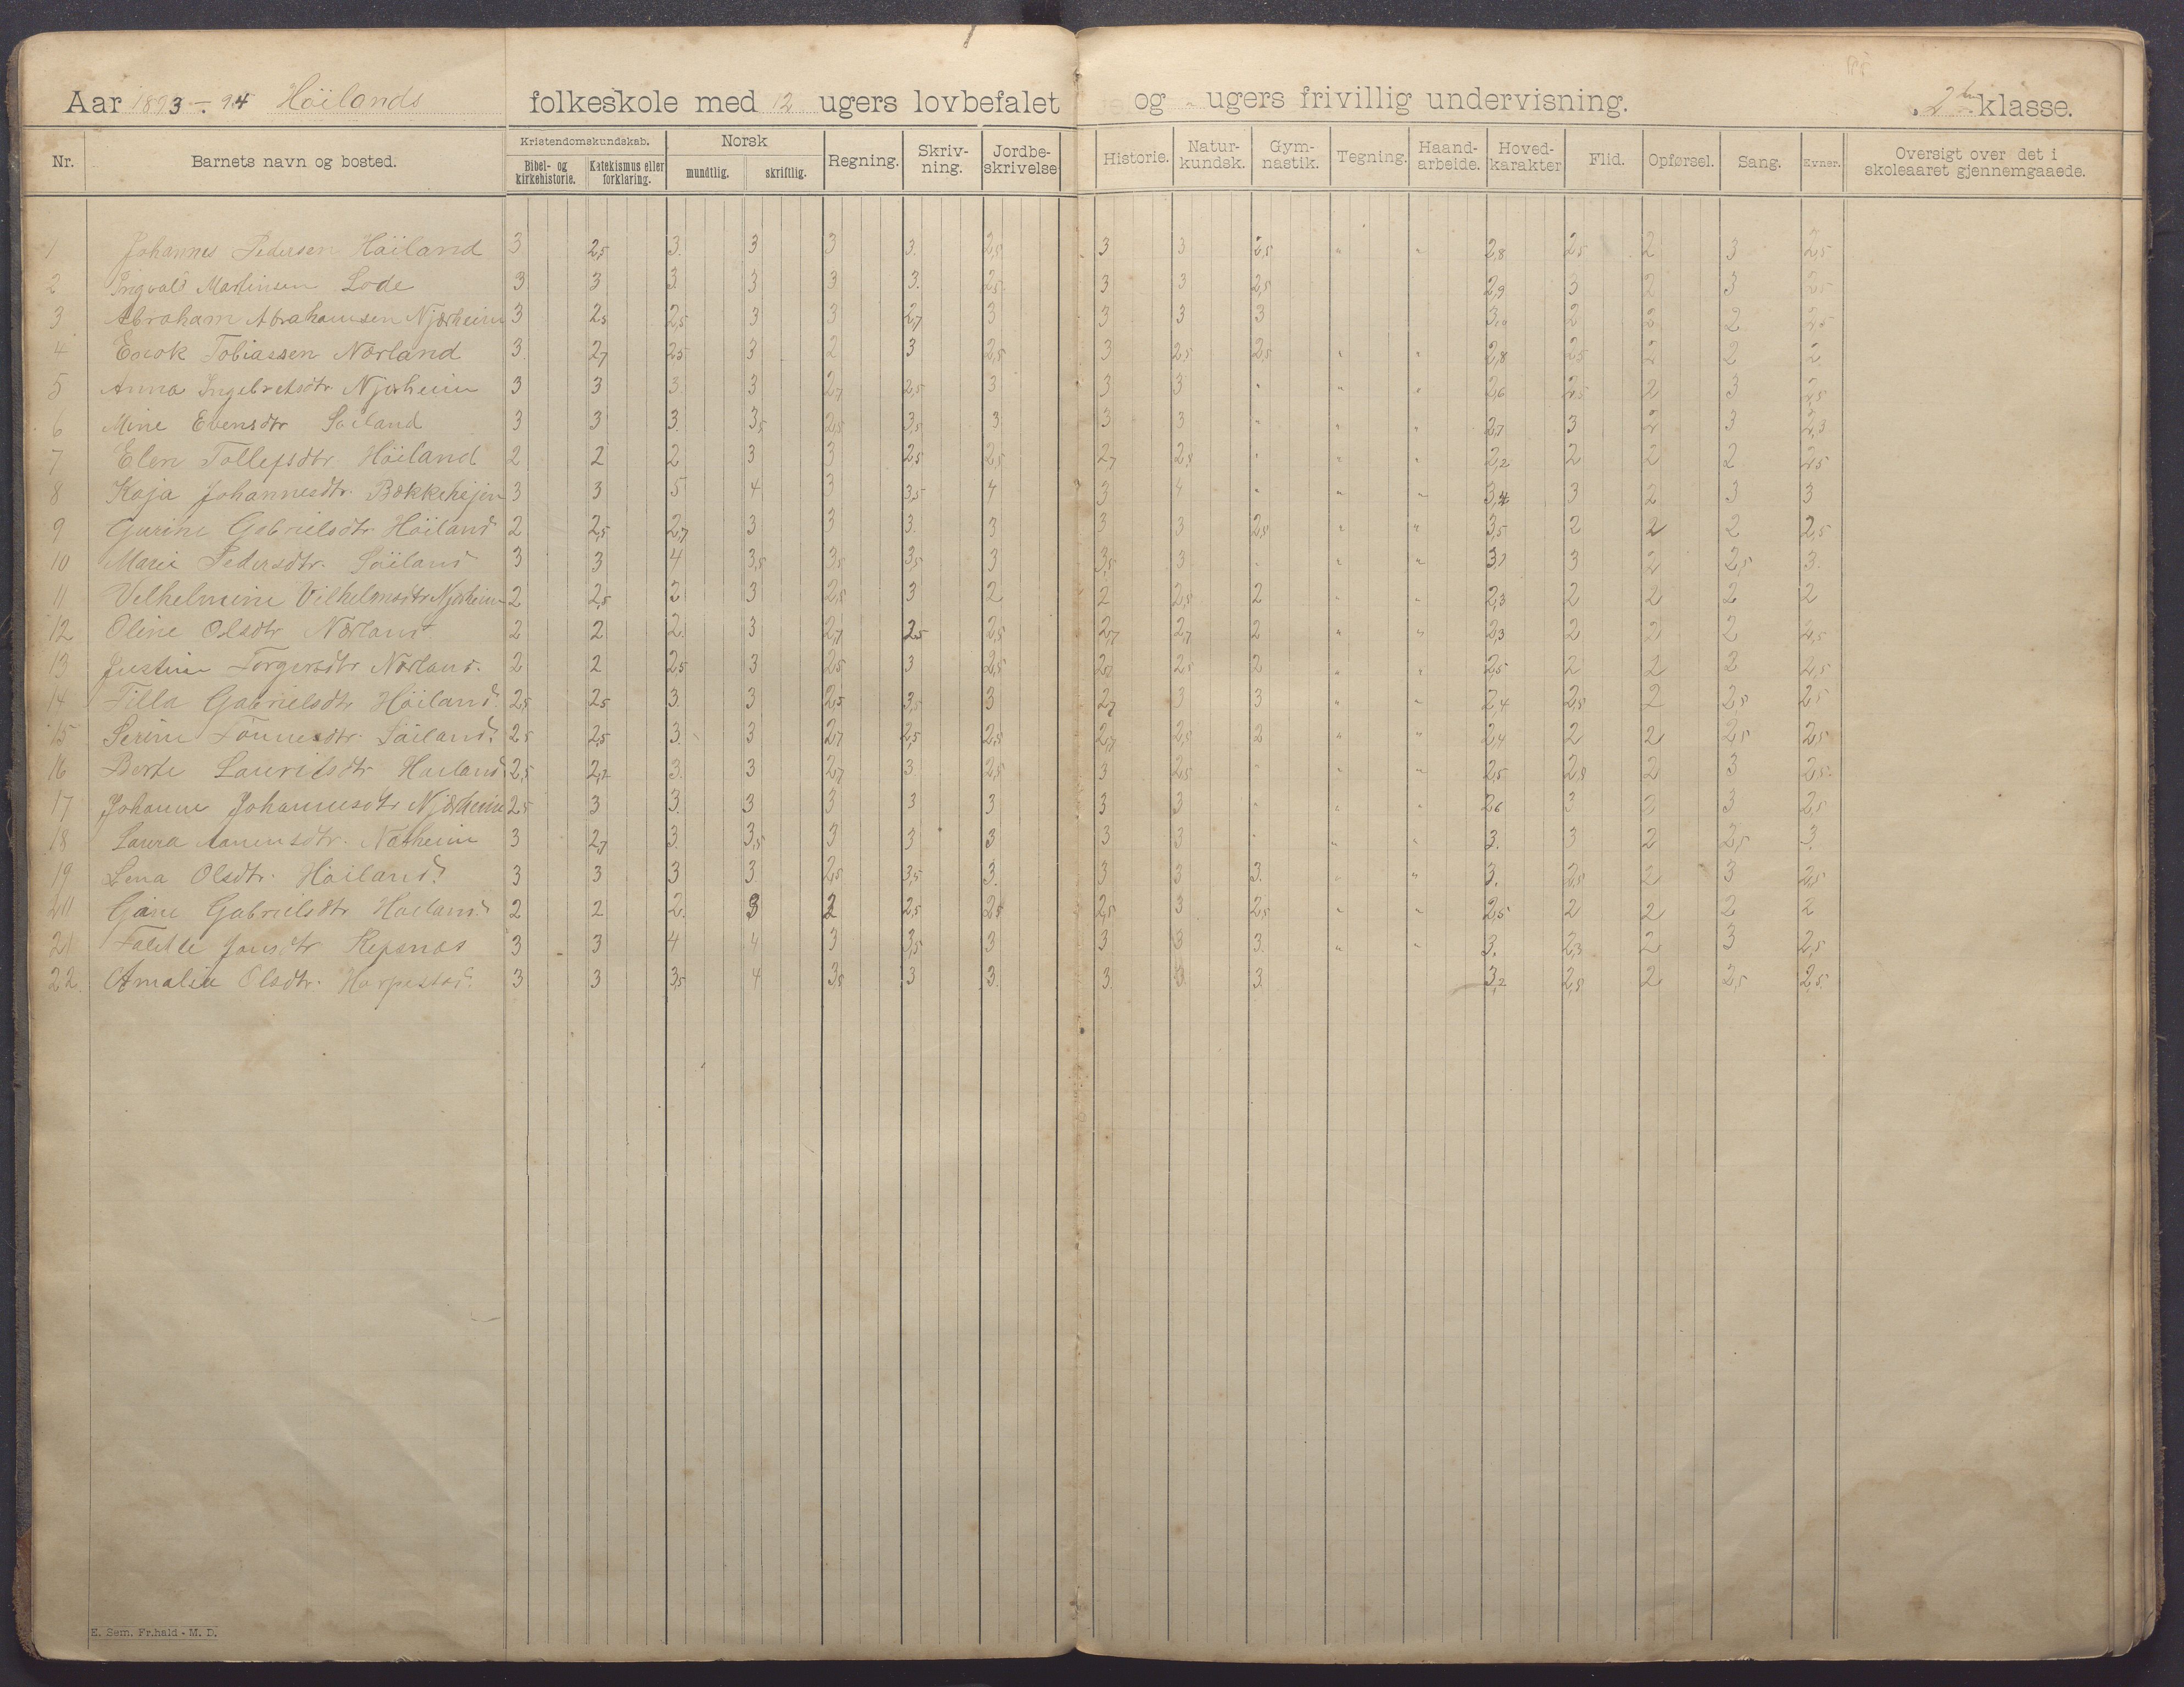 Aar 1893-94 Höilands folkeskole med 12 ugers lovbefalet og " ugers frivillig undervisning. 2den klasse.
Nr. Barnets navn og bosted. Kristendomskundskab. Bibel- og kirkehistorie. Katekismus eller forklaring. Norsk mundtlig. skriftlig. Regning. Skriv-ning. Jordbe-skrivelse Historie. Natur-kundsk. Gym-nastik. Tegning. Haand-arbeide. Hoved-karakter Flid. Opførsel. Sang. Evner. Oversigt over det i skoleaaret gjennemgaaede.
1 Johannes Pedersen Höiland 3 2,5 3. 3 3 3. 2,5 3 3 2,5 " " 2,8 2,5 2 3 2,5
2 Ingvald Martinsen Lode 3 3 3. 3 3 3. 2,5 3 3 2,5 2,9 3 2 3 2,5
3 Abraham Abrahamsen Njærheim 3 2,5 2,5 3 3 2,7 3 3 3 3 3,0 2 2 2 2,5
4 Enok Tobiassen Nærland 3. 2,7 2,5 3 2 3 2,5 3 2,5 2,5 " " 2,8 2,5 2 2 2
5 Anna Ingebretsdtr Njærheim 3 3 3. 3 2,7 2,5 3 3 3 " " " 2,6 2,5 2 3 2,5
6 Mine Evensdtr Söiland 3 3 3. 3,5 2,5 3,5 3 3 3 " " " 2,7 3 2 3 2,3
7 Elen Tollefsdtr Höiland 2 2 2 3 3 2,5 2,5 2,7 2,5 " " " 2,2 2 2 2 2,5
8 Kaja Johannesdtr. Bækkehejen 3 3 5 4 3 3,5 4 3 4 " " " 3,4 3 2 3 3
9 Gurine Gabrielsdtr Höiland 2 2,5 2,7 3 3 3. 3 3 3 2,5 " " 3,5 2 2 2 2,5
10 Marie Pedersdtr. Söiland 3 3 4 3,5 3,5 3,5 3 3,5 3 " " " 3,1 3 2 2,5 3.
11 Velhelmine Vilhelmsdtr Njærheim 2 2,5 2 3 2,5 3 2 2 2,5 2 " " 2,3 2 2 2 2
12 Oline Olsdtr Nærland 2 2 2. 3 2,7 2,5 2,5 2,7 2,7 2 " " 2,3 2 2 2 2,5
13 Justine Torgersdtr Nærland. 2 2 2,5 3 2,5 3 2,5 2,7 2,5 2 " " 2,5 2 2 2 2,5
14 Tilla Gabrielsdtr Höiland. 2,5 2,5 3. 3 2,5 3,5 3 2,7 3 3 " " 2,4 2,5 2 2,5 2,5
15 Serine Tönnesdtr. Söiland. 2,5 2,5 3. 3 2,7 2,5 2,5 2,7 2,5 2 " " 2,4 2 2 2,5 2,5
16 Berte Lauritsdtr Höiland 2,5 2,7 3. 3 2,7 3. 2,5 3 2,5 " " " 2,5 2,5 2 3 2,5.
17 Johanne Johannesdtr Njærheim 2,5 3 3. 3 3 3 3 3 3 " " " 2,6 3 2 3 2,5
18 Laura Aanensdtr. 3 2,7 3. 3,5 3 3 3 3 3 " " " 3. 3 2 2,5 3.
19 Lena Olsdtr. Höiland. 3 3 3 3 2,5 3,5 3. 3 3 3. " " 3. 2,5 2 3 2,5
20 Gabrielsdtr Höiland. 2 2 2. 3 2 2,5 2,5 2,5 3 2,5 " " 2,5 2 2 2 2
21 Jonsdtr 3 3 4 4 3 3,5 3. 3. 3 3. " " 3. 2,3 2 3 2,5
22. Amalie Olsdtr. Harpestad. 3 3 3,5 4 3,5 3 3. 3. 3. 3. 3,2 2,5 2 2,5 2,5
E. Sem. Fr.hald - M. D.